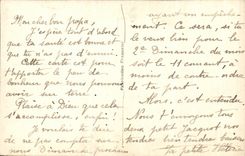 Mon cher bon papa,
J'espère tout d'abord
que ta santé est bonne et
que tu n'as pas d'ennui.
Cette carte est pour
t'apporter le peu de
bonheur que nous pouvons
avoir sur terre.
Plaise à Dieu que cela
s'accomplisse, enfin!
Je voulais te dire
de ne pas compter sur
nous Dimanche prochain
ayant un empêche-
ment. Ce sera, si tu
le veux bien pour le
2e Dimanche du mois
soit le 11 courant, à
moins de contre-
ordre de ta part.
Alors, c'est entendu
Nous t'envoyons tous
deux petit Jacquot nos
tendres
ta petite